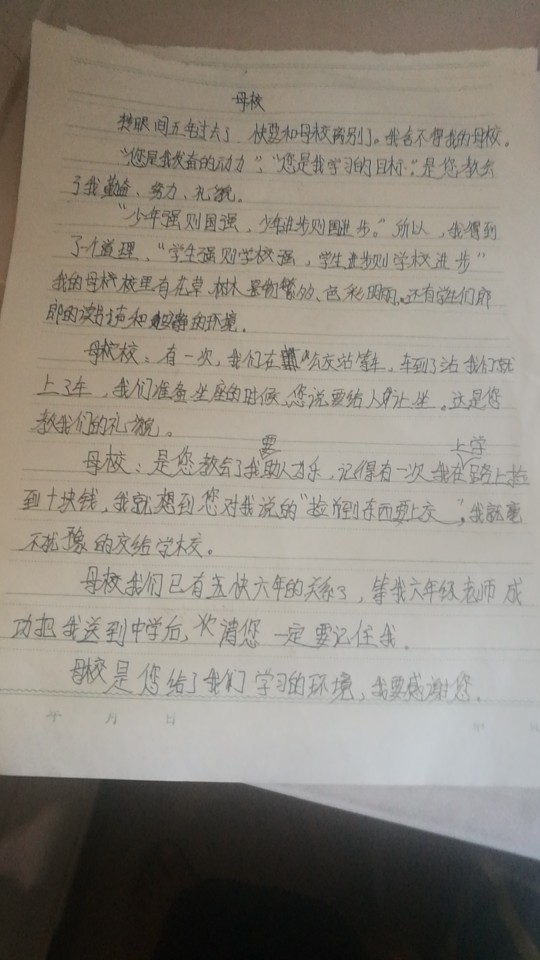 母校
转眼间五年过去了，快要和母校离别了。我舍不得我的母校。
"您是我发奋的动力"，"您是我学习的目标。"是您教会
了我勤奋、努力、礼貌。
"少年强则国强，少年进步则国进步。"所以，我得到
了一个道理，"学生强则学校强，学生进步则学校进步"
我的母校校里有花草、树木、景物繁多、色彩斑斓。还有学生们郎
郎的读书声和安静的环境。
母校：有一次，我们在公交站等车，车到了站我们就
上了车，我们准备坐座的时候，您说要给人家让坐。这是您
教我们的礼貌。
要 上学
母校：是您教会了我助人为乐，记得有一次我在路上捡
到十块钱，我就想到您对我说的"捡到东西要上交"，我就毫
不犹豫的交给学校。
母校我们已有五快六年的关系了，等我六年级老师成
功把我送到中学后，请您一定要记住我。
母校是您给了我们学习的环境，我要感谢您。
年 月 日